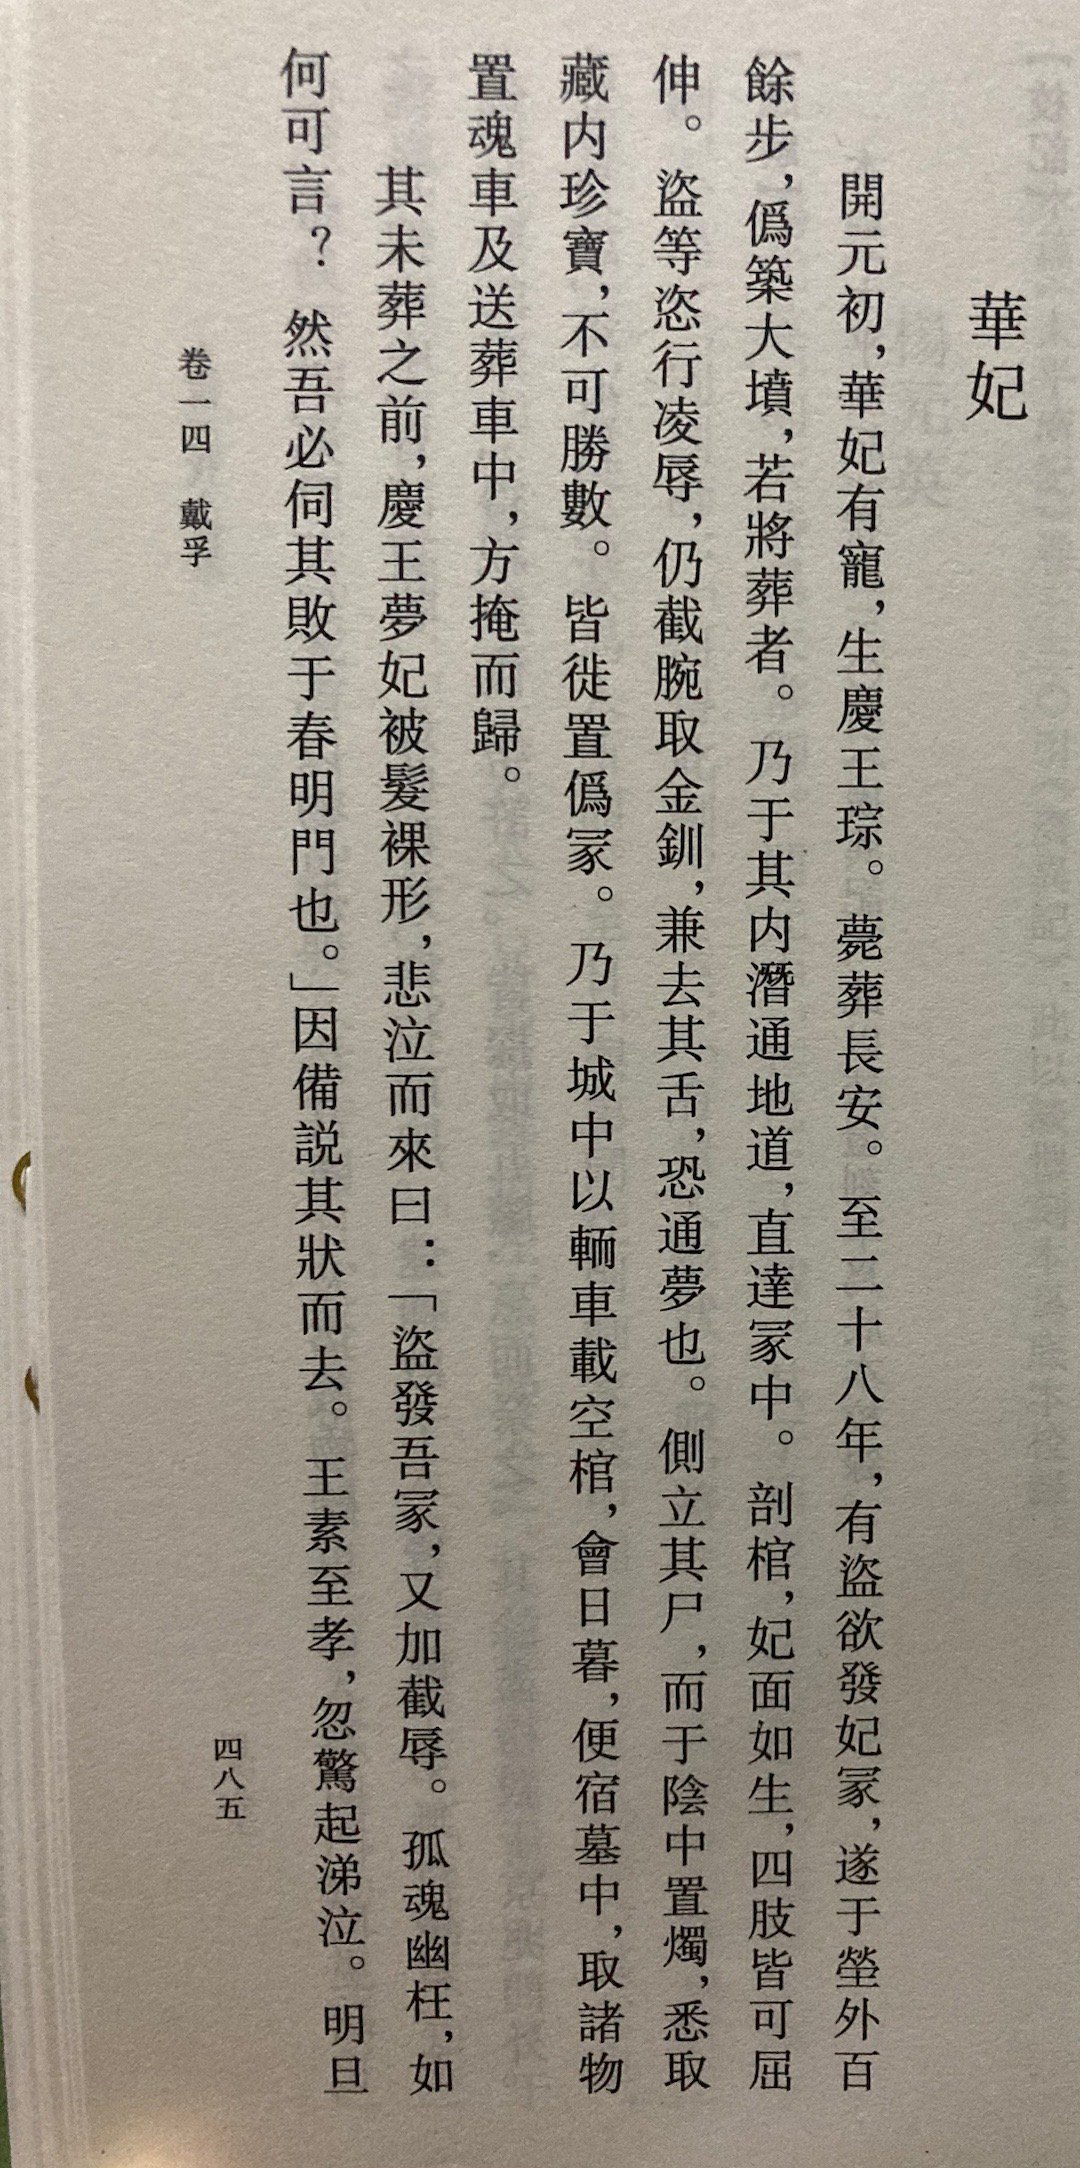 華妃
開元初，華妃有寵，生慶王琮。薨葬長安。至二十八年，有盜欲發妃冢，遂于塋外百
餘步，僞築大墳，若將葬者。乃于其内潛通地道，直達冢中。剖棺，妃面如生，四肢皆可屈
伸。盜等恣行凌辱，仍截腕取金釧，兼去其舌，恐通夢也。側立其尸，而于陰中置燭，悉取
藏内珍寶，不可勝數。皆徙置僞冢。乃于城中以輀車載空棺，會日暮，便宿墓中，取諸物
置魂車及送葬車中，方掩而歸。
其未葬之前，慶王夢妃被髮裸形，悲泣而來曰：「盜發吾冢，又加截辱。孤魂幽枉，如
何可言？然吾必伺其敗于春明門也。」因備説其狀而去。王素至孝，忽驚起涕泣。明旦
卷一四 戴孚
四八五